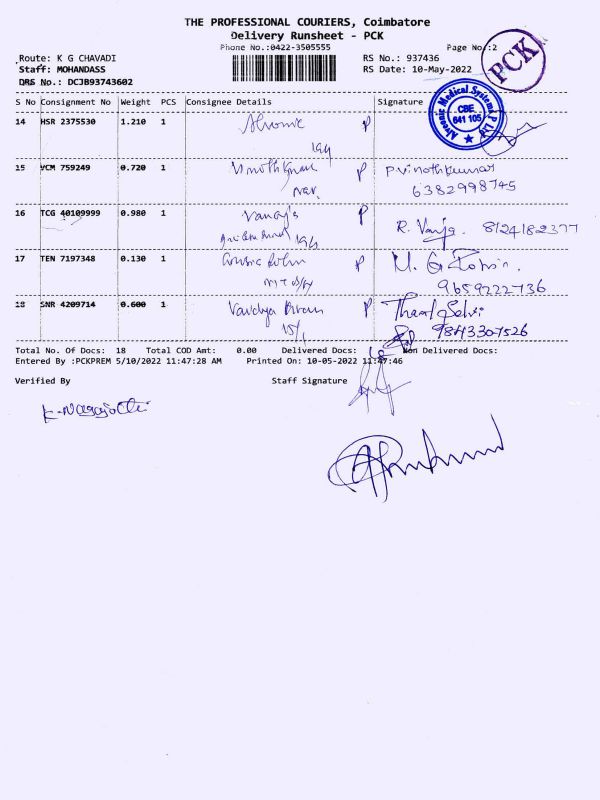 THE PROFESSIONAL COURIERS, Coimbatore
Delivery Runsheet - PCK
Phone No.:0422-3505555
Page No.:2
PCK
Route: K G CHAVADI
RS No.: 937436
Staff: MOHANDASS
RS Date: 10-May-2022
DRS No.: DCJB93743602
S No Consignment No Weight PCS Consignee Details Signature
Alvonic Medical Systems P Ltd
CBE
641 105
14 HSR 2375530 1.210 1 Alvonic P
15 VCM 759249 0.720 1 Vinothkumar P P Vinothkumar
Nav. 6382998745
16 TCG 40109999 0.980 1 Vanaja P
R. Vanja. 8124182377
17 TEN 7197348 0.130 1 P M. G
9659222736
18 SNR 4209714 0.600 1 Vaidya P
9843307526
Total No. Of Docs: 18 Total COD Amt: 0.00 Delivered Docs: 18 Non Delivered Docs:
Entered By :PCKPREM 5/10/2022 11:47:28 AM Printed On: 10-05-2022 11:47:46
Verified By Staff Signature
K. Nagajothi